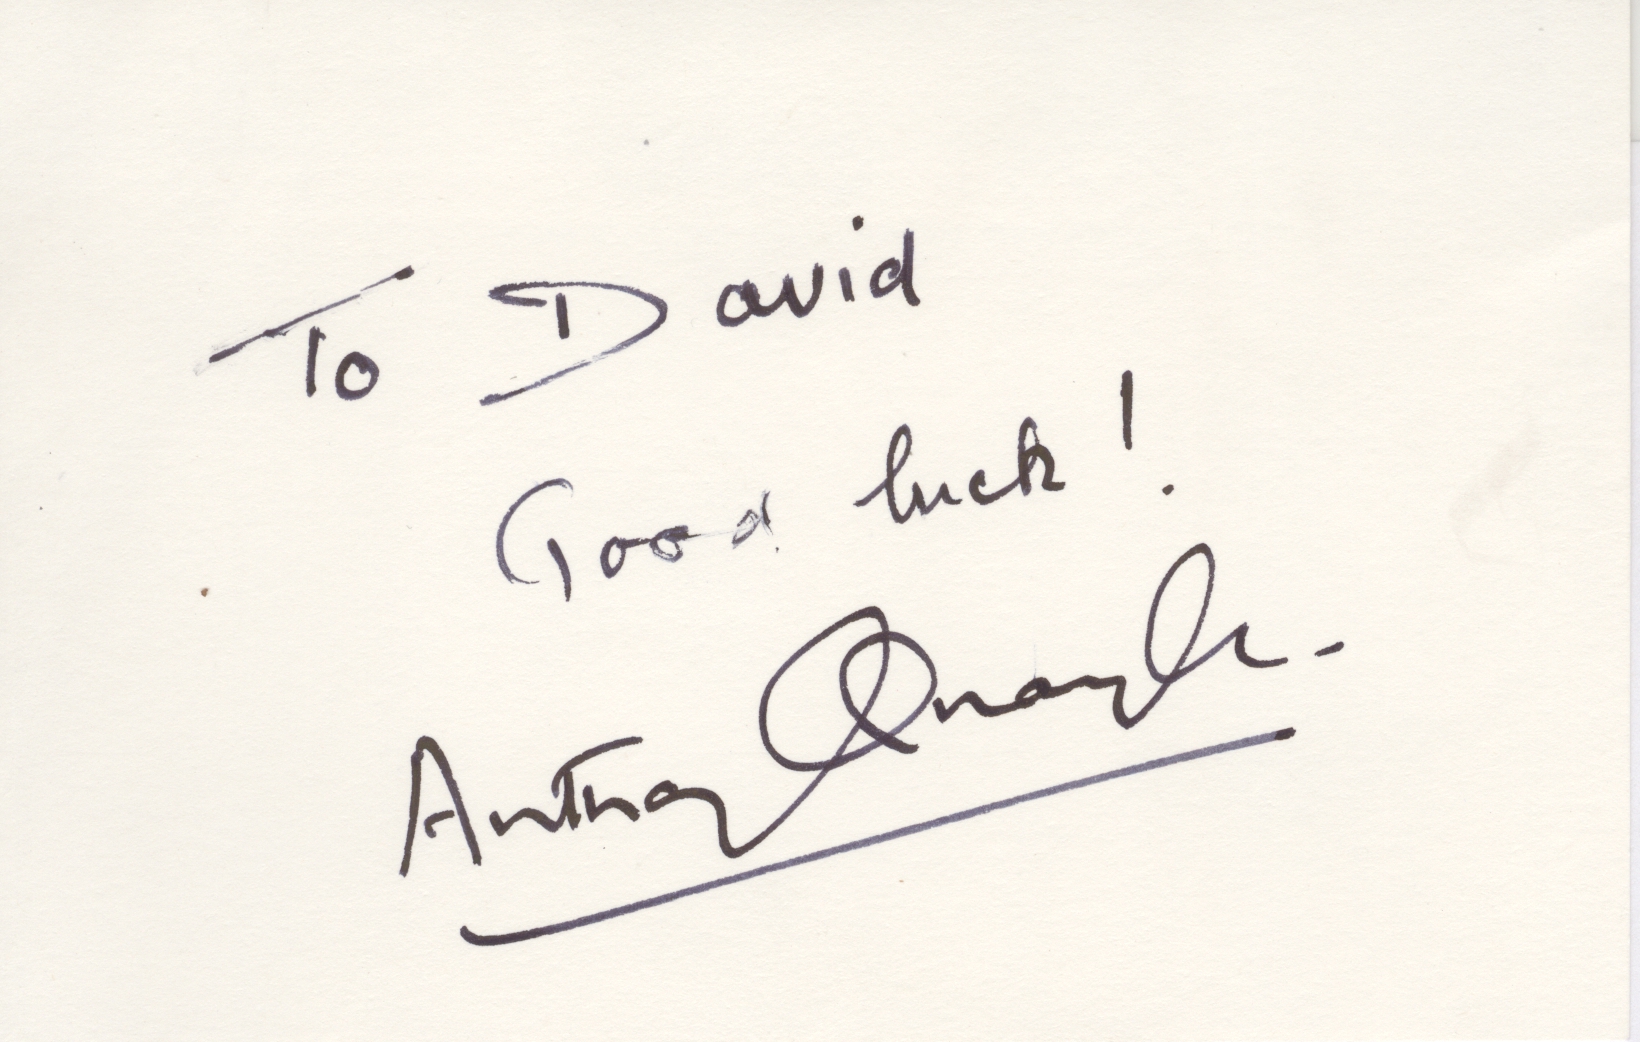 To David
Good luck!
Anthony Quayle.